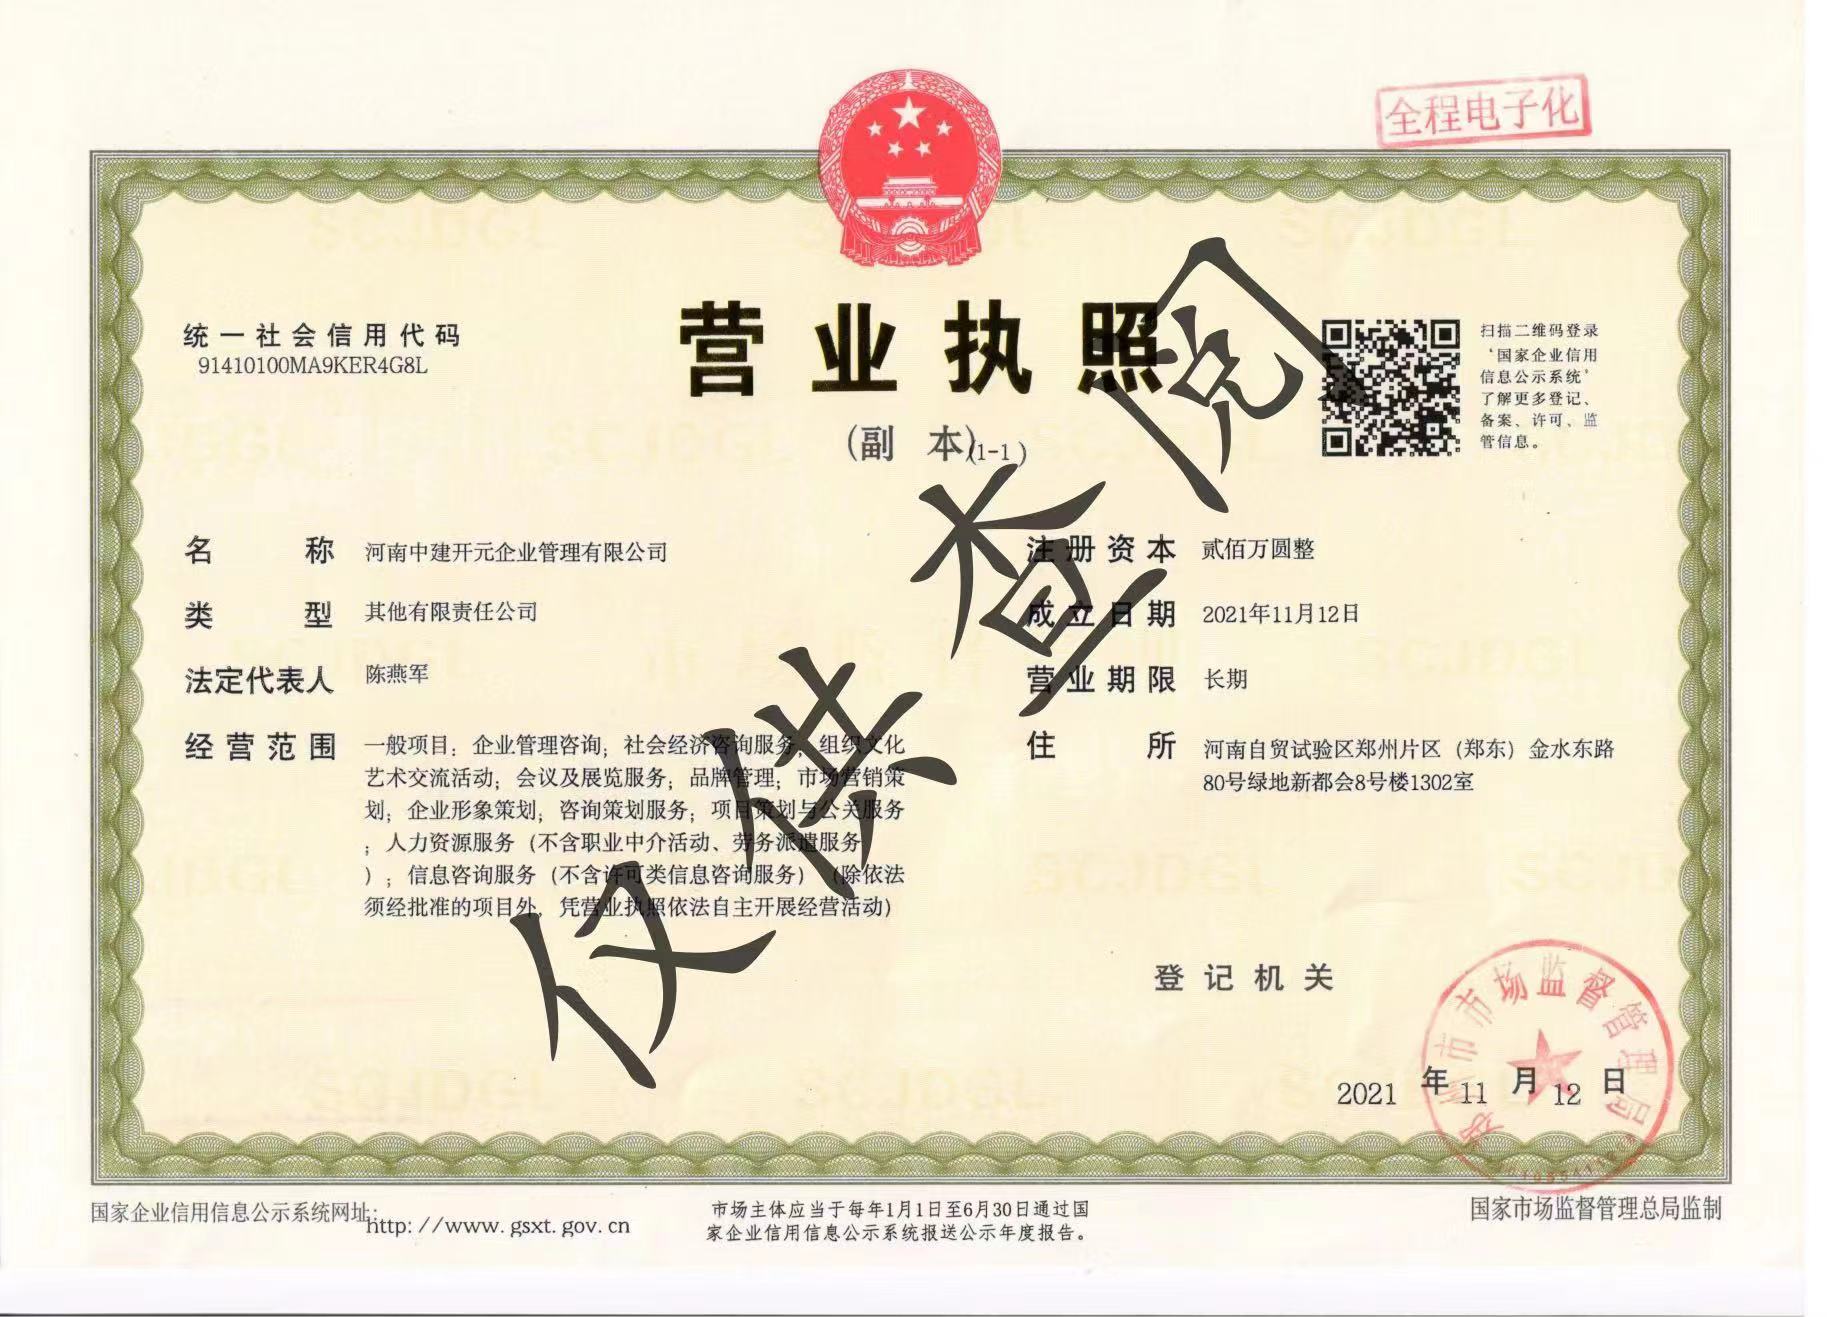 全程电子化
统一社会信用代码
91410100MA9KER4G8L
营业执照
(副 本)(1-1)
扫描二维码登录
‘国家企业信用
信息公示系统’
了解更多登记、
备案、许可、监
管信息。
名 称 河南中建开元企业管理有限公司
类 型 其他有限责任公司
法定代表人 陈燕军
经营范围 一般项目：企业管理咨询；社会经济咨询服务；组织文化
艺术交流活动；会议及展览服务；品牌管理；市场营销策
划；企业形象策划；咨询策划服务；项目策划与公关服务
；人力资源服务（不含职业中介活动、劳务派遣服务
）；信息咨询服务（不含许可类信息咨询服务）（除依法
须经批准的项目外，凭营业执照依法自主开展经营活动）
注册资本 贰佰万圆整
成立日期 2021年11月12日
营业期限 长期
住 所 河南自贸试验区郑州片区（郑东）金水东路
80号绿地新都会8号楼1302室
仅供查阅
登记机关
郑州市市场监督管理局
2021 年 11 月 12 日
国家企业信用信息公示系统网址：http://www.gsxt.gov.cn
市场主体应当于每年1月1日至6月30日通过国
家企业信用信息公示系统报送公示年度报告。
国家市场监督管理总局监制